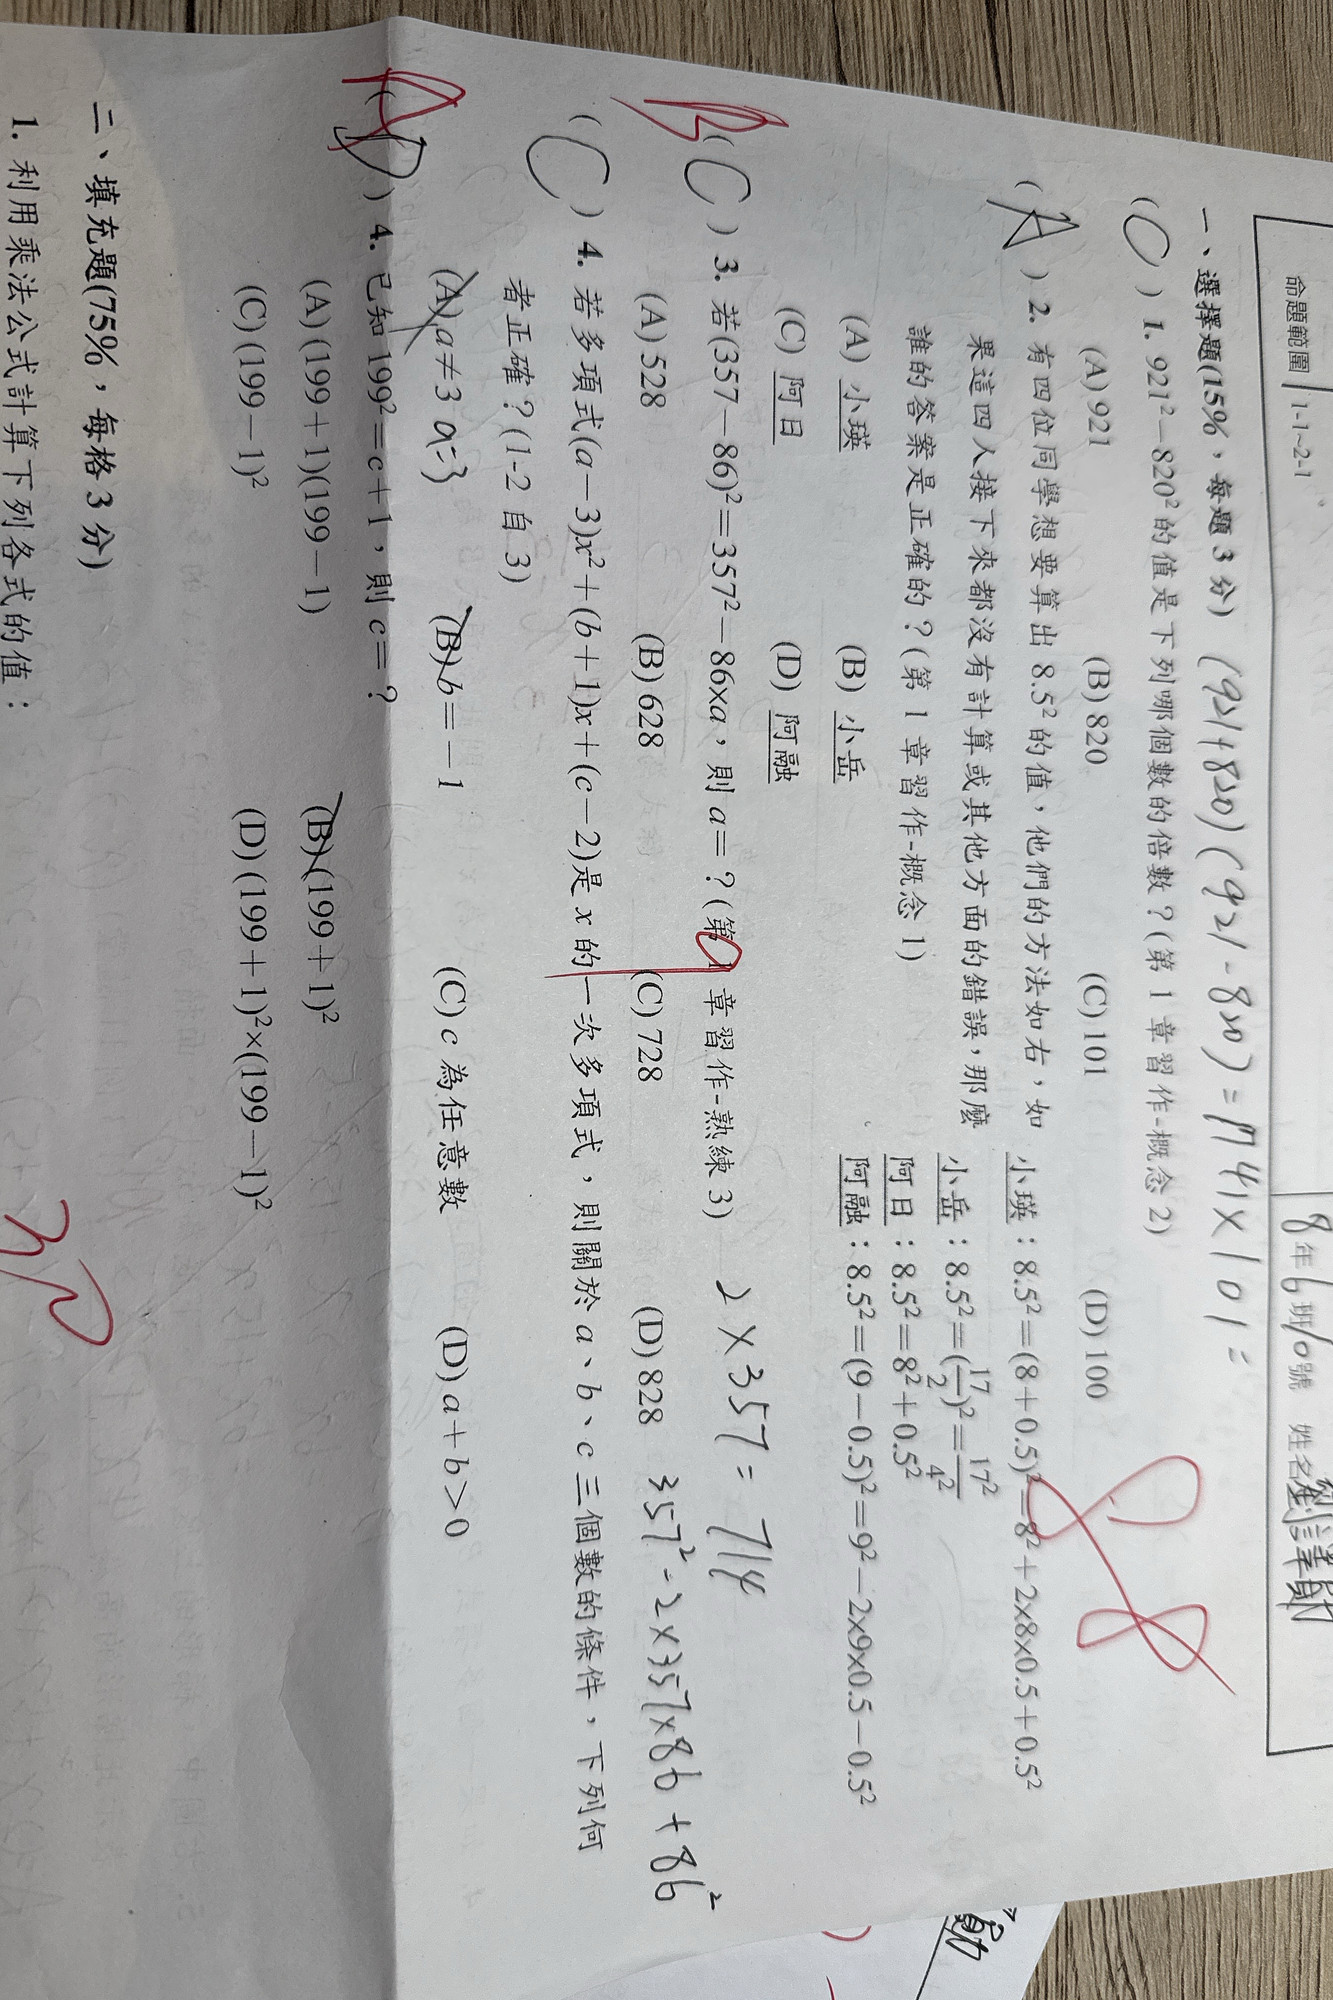 命題範圍 1-1~2-1 8年6班10號 姓名
一、選擇題(15%，每題3分) (921+820)(921-820)=1741×101=
(C) 1. 921²－820²的值是下列哪個數的倍數？(第1章習作-概念2)
(A) 921 (B) 820 (C) 101 (D) 100
88
(A) 2. 有四位同學想要算出 8.5²的值，他們的方法如右，如
果這四人接下來都沒有計算或其他方面的錯誤，那麼
誰的答案是正確的？(第1章習作-概念1)
小瑛：8.5²＝(8＋0.5)²＝8²＋2×8×0.5＋0.5²
小岳：8.5²＝(17/2)²＝17²/4²
阿日：8.5²＝8²＋0.5²
阿融：8.5²＝(9－0.5)²＝9²－2×9×0.5－0.5²
(A) 小瑛 (B) 小岳
(C) 阿日 (D) 阿融
B (C) 3. 若(357－86)²＝357²－86×a，則 a＝？(第1章習作-熟練3) 2×357=714
(A) 528 (B) 628 (C) 728 (D) 828 357²-2×357×86+86²
(C) 4. 若多項式(a－3)x²＋(b＋1)x＋(c－2)是 x 的一次多項式，則關於 a、b、c 三個數的條件，下列何
者正確？(1-2 自3)
(A) a≠3 a=3 (B) b＝－1 (C) c 為任意數 (D) a＋b＞0
A (D) 4. 已知 199²＝c＋1，則 c＝？
(A) (199＋1)(199－1) (B) (199＋1)²
(C) (199－1)² (D) (199＋1)²×(199－1)²
二、填充題(75%，每格3分)
1. 利用乘法公式計算下列各式的值：